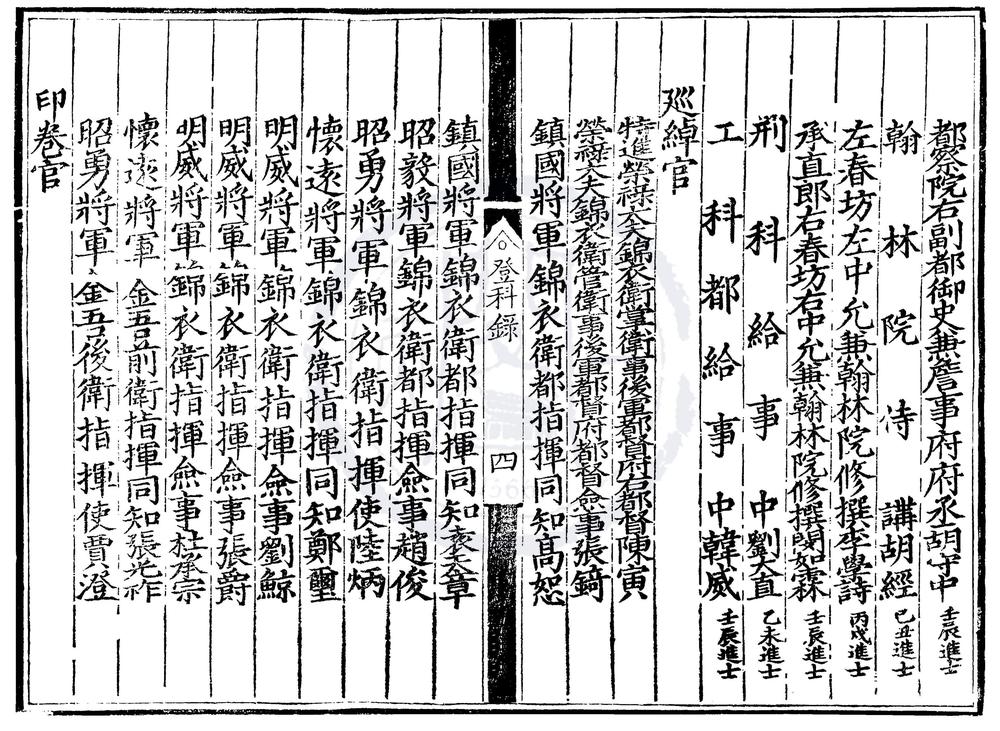 都察院右副都御史兼詹事府府丞胡守中壬辰進士
翰林院侍講胡經己丑進士
左春坊左中允兼翰林院修撰李學詩丙戌進士
承直郎右春坊右中允兼翰林院修撰閻如霖壬辰進士
刑科給事中劉大直乙未進士
工科都給事中韓威壬辰進士
廵綽官
特進榮祿大夫錦衣衛掌衛事後軍都督府右都督陳寅
榮祿大夫錦衣衛管衛事後軍都督府都督僉事張錡
鎮國將軍錦衣衛都指揮同知高恕
登科錄
四
鎮國將軍錦衣衛都指揮同知袁天章
昭毅將軍錦衣衛都指揮僉事趙俊
昭勇將軍錦衣衛指揮使陸炳
懷遠將軍錦衣衛指揮同知鄭璽
明威將軍錦衣衛指揮僉事劉鯨
明威將軍錦衣衛指揮僉事張爵
明威將軍錦衣衛指揮僉事杜承宗
懷遠將軍金吾前衛指揮同知張光祚
昭勇將軍金吾後衛指揮使賈澄
印卷官